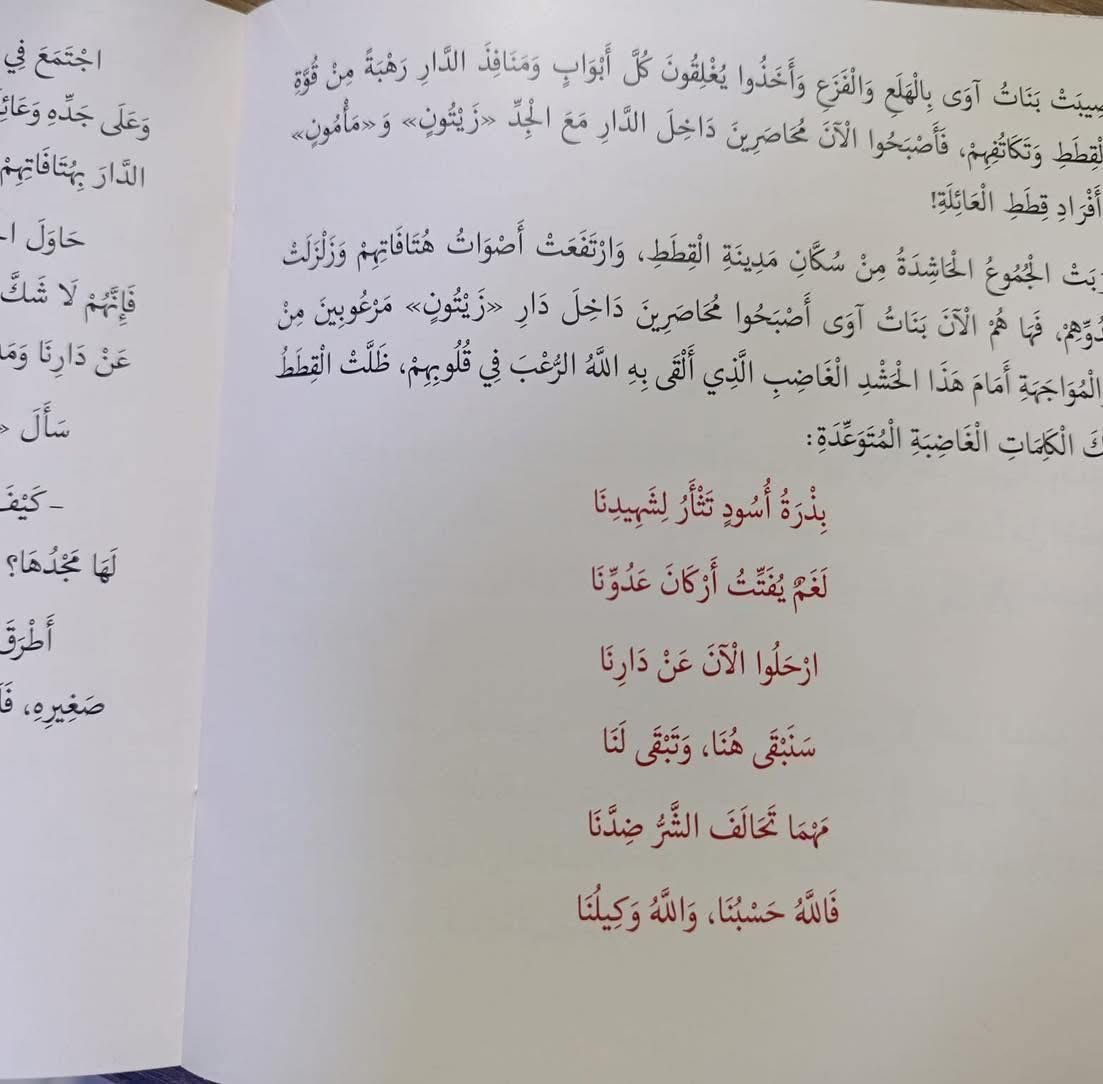 بَنَاتُ آوَى بِالْهَلَعِ وَالْفَزَعِ وَأَخَذُوا يُغْلِقُونَ كُلَّ أَبْوَابٍ وَمَنَافِذَ الدَّارِ رَهْبَةً مِنْ قُوَّةِ
الْقِطَطِ وَتَكَاتُفِهِمْ، فَأَصْبَحُوا الْآنَ مُحَاصَرِينَ دَاخِلَ الدَّارِ مَعَ الْجِدِّ «زَيْتُونٍ» وَ«مَأْمُونٍ»
أَفْرَادِ قِطَطِ الْعَائِلَةِ!
الْجُمُوعُ الْحَاشِدَةُ مِنْ سُكَّانِ مَدِينَةِ الْقِطَطِ، وَارْتَفَعَتْ أَصْوَاتُ هُتَافَاتِهِمْ وَزَلْزَلَتْ
فَهَا هُمْ الْآنَ بَنَاتُ آوَى أَصْبَحُوا مُحَاصَرِينَ دَاخِلَ دَارِ «زَيْتُونٍ» مَرْعُوبِينَ مِنْ
الْمُوَاجَهَةِ أَمَامَ هَذَا الْحَشْدِ الْغَاضِبِ الَّذِي أَلْقَى بِهِ اللَّهُ الرُّعْبَ فِي قُلُوبِهِمْ، ظَلَّتْ الْقِطَطُ
الْكَلِمَاتِ الْغَاضِبَةِ الْمُتَوَعِّدَةِ:
بِذْرَةُ أُسُودٍ تَثْأَرُ لِشَهِيدِنَا
لَغَمٌ يُفَتِّتُ أَرْكَانَ عَدُوِّنَا
ارْحَلُوا الْآنَ عَنْ دَارِنَا
سَنَبْقَى هُنَا، وَتَبْقَى لَنَا
مَهْمَا تَحَالَفَ الشَّرُّ ضِدَّنَا
فَاللَّهُ حَسْبُنَا، وَاللَّهُ وَكِيلُنَا
اجْتَمَعَ فِي
وَعَلَى جَدِّهِ
الدَّارَ بِهُتَافَاتِهِمْ
حَاوَلَ
فَإِنَّهُمْ لَا شَكَّ
عَنْ دَارِنَا
سَأَلَ «
– كَيْفَ
لَهَا مَجْدُهَا؟
أَطْرَقَ
صَغِيرِهِ،